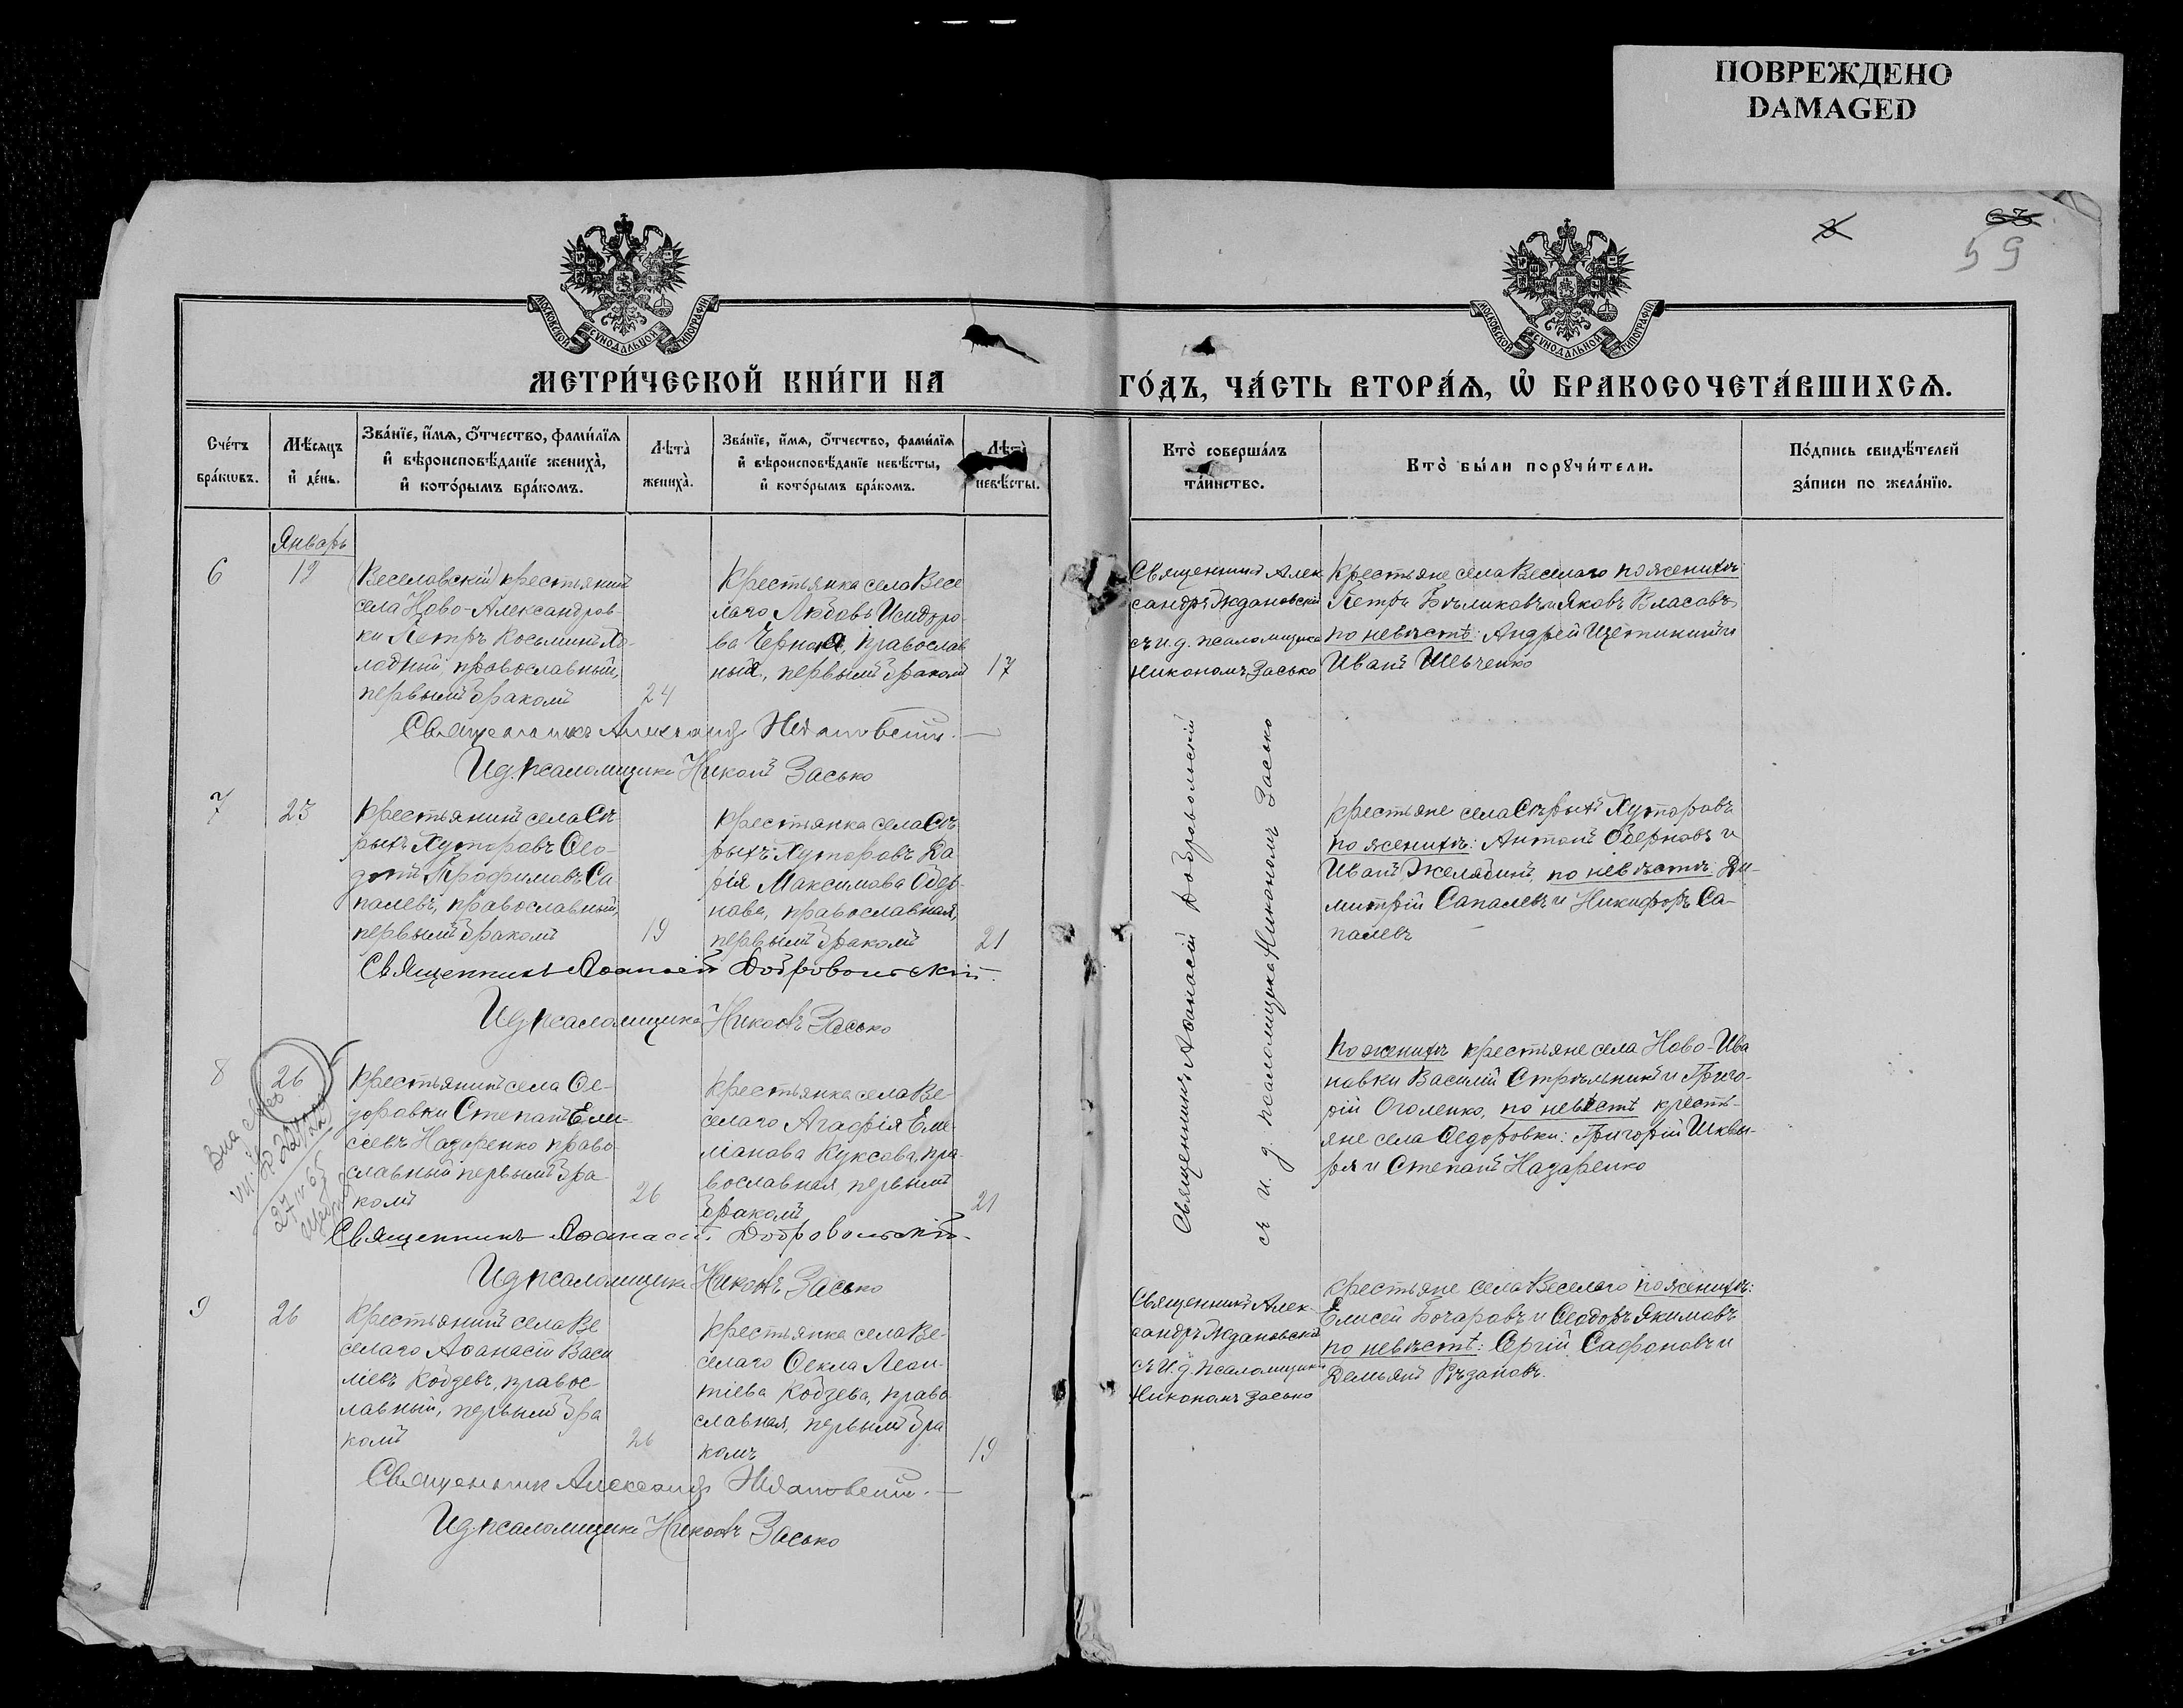 ПОВРЕЖДЕНО
DAMAGED
59
МОСКОВСКОЙ СѴНОДАЛЬНОЙ ТИПОГРАФІИ
МОСКОВСКОЙ СѴНОДАЛЬНОЙ ТИПОГРАФІИ
МЕТРИ́ЧЕСКОЙ КНИ́ГИ НА
ГО́ДЪ, ЧА́СТЬ ВТОРА́Ѧ, Ѽ БРАКОСОЧЕТА́ВШИХСѦ.
Сче́тъ
бра́кѡвъ.
Мѣ́сяцъ
и҆ де́нь.
Зва́нїе, и҆́мѧ, ѻ҆́тчество, фами́лїѧ
и҆ вѣроисповѣ́данїе жениха̀,
и҆ кото́рымъ бра́комъ.
Лѣта̀
жениха̀.
Зва́нїе, и҆́мѧ, ѻ҆́тчество, фами́лїѧ
и҆ вѣроисповѣ́данїе невѣ́сты,
и҆ кото́рымъ бра́комъ.
Лѣта̀
невѣ́сты.
Кто̀ соверша́лъ
та́инство.
Кто̀ бы́ли порꙋчи́тели.
По́дпись свидѣ́телей
за́писи по жела́нїю.
Январь
6
12
Веселовскій крестьянинъ
села Ново-Александров-
ки Петръ Косьминъ Хо-
лодный, православный,
первымъ бракомъ
24
Крестьянка села Весе
лаго Любовь Исидоро-
ва Черная, православ
ная, первымъ бракомъ
17
Священникъ Алек
сандръ Ждановскій
съ и. д. псаломщика
Никономъ Засько
Крестьяне села Веселаго по женихѣ:
Петръ Бѣликовъ и Яковъ Власовъ
по невѣстѣ: Андрей Щетининъ и
Иванъ Шевченко
Священникъ Александръ Ждановскій.
И.д. псаломщика Никонъ Засько
7
23
Крестьянинъ села Сѣ
рыхъ Хуторовъ Ѳео-
дотъ Трофимовъ Са
палевъ, православный,
первымъ бракомъ
19
Крестьянка села Сѣ
рыхъ Хуторовъ Да
рія Максимова Обер-
нова, православная,
первымъ бракомъ
21
Крестьяне села Сѣрыхъ Хуторовъ
по женихѣ: Антонъ Оберновъ и
Иванъ Желябинъ, по невѣстѣ: Ди-
митрій Сапалевъ и Никифоръ Са-
палевъ
Священникъ Аѳанасій Добровольскій.
И.д. псаломщика Никонъ Засько
Священникъ Аѳанасій Добровольскій
съ и. д. псаломщика Никономъ Засько
8
26
Крестьянинъ села Ѳе-
доровки Степанъ Ели-
сеевъ Назаренко право-
славный первымъ бра-
комъ
26
Крестьянка села Ве-
селаго Агафія Еме-
ліанова Куксова, пра-
вославная, первымъ
бракомъ
21
По женихѣ крестьяне села Ново-Ива
новки Василій Стрѣльникъ и Григо-
рій Оголенко, по невѣстѣ кресть-
яне села Ѳедоровки: Григорій Шквы-
ря и Степанъ Назаренко
Священникъ Аѳанасій Добровольскій.
И.д. псаломщика Никонъ Засько
9
26
Крестьянинъ села Ве
селаго Аѳанасій Васи
ліевъ Кобзевъ, правос-
лавный, первымъ бра
комъ
26
Крестьянка села Ве-
селаго Ѳекла Леон-
тіева Кобзева, право
славная, первымъ бра
комъ
19
Священникъ Алек-
сандръ Ждановскій
съ и.д. псаломщика
Никономъ Засько
Крестьяне села Веселаго по женихѣ:
Елисей Бочаровъ и Ѳеодоръ Якимовъ
по невѣстѣ: Сергій Сафоновъ и
Демьянъ Рѣзановъ.
Священникъ Александръ Ждановскій.
И.д. псаломщика Никонъ Засько